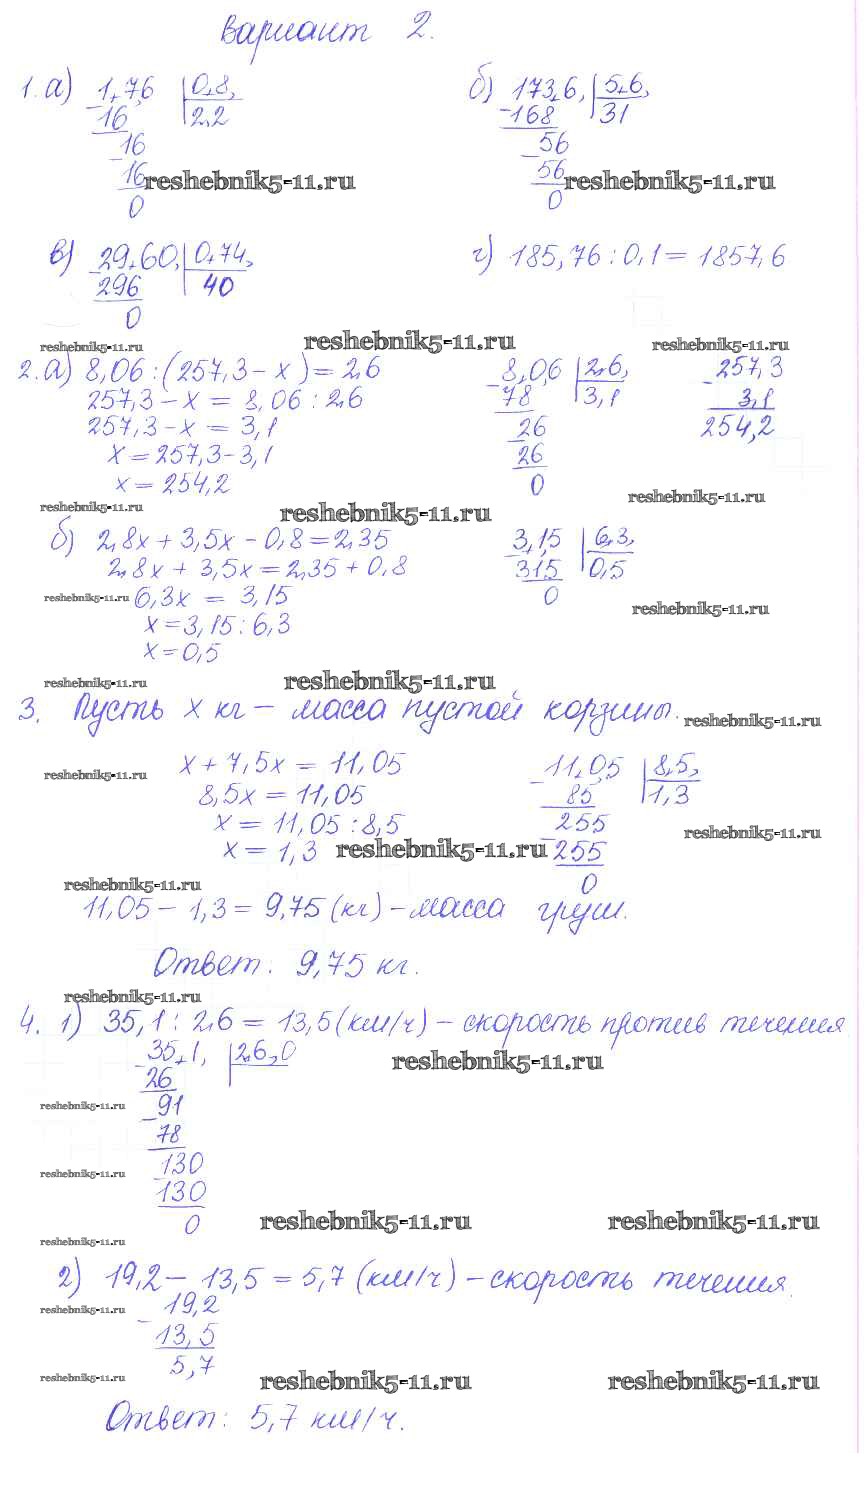 Вариант 2.
1. а) 1,7,6 | 0,8, б) 173,6, | 5,6,
16 2,2 168 31
16 56
16 reshebnik5-11.ru 56 reshebnik5-11.ru
0 0
в) 29,60, | 0,74, г) 185,76 : 0,1 = 1857,6
296 40
0
reshebnik5-11.ru reshebnik5-11.ru reshebnik5-11.ru
2. а) 8,06 : (257,3 - х) = 2,6 8,0,6 | 2,6, 257,3
257,3 - х = 8,06 : 2,6 78 3,1 3,1
257,3 - х = 3,1 26 254,2
х = 257,3 - 3,1 26
х = 254,2 0 reshebnik5-11.ru
reshebnik5-11.ru reshebnik5-11.ru
б) 2,8х + 3,5х - 0,8 = 2,35 3,1,5 | 6,3,
2,8х + 3,5х = 2,35 + 0,8 315 0,5
reshebnik5-11.ru 6,3х = 3,15 0 reshebnik5-11.ru
х = 3,15 : 6,3
х = 0,5
reshebnik5-11.ru reshebnik5-11.ru
3. Пусть х кг – масса пустой корзины. reshebnik5-11.ru
х + 7,5х = 11,05 11,0,5 | 8,5,
reshebnik5-11.ru
8,5х = 11,05 85 1,3
х = 11,05 : 8,5 255 reshebnik5-11.ru
х = 1,3 reshebnik5-11.ru 255
reshebnik5-11.ru 0
11,05 - 1,3 = 9,75 (кг) – масса груш.
Ответ: 9,75 кг.
reshebnik5-11.ru
4. 1) 35,1 : 2,6 = 13,5 (км/ч) – скорость против течения
35,1, | 2,6,0 reshebnik5-11.ru
26
reshebnik5-11.ru 91
78
reshebnik5-11.ru 130
130
0 reshebnik5-11.ru reshebnik5-11.ru
reshebnik5-11.ru
2) 19,2 - 13,5 = 5,7 (км/ч) – скорость течения.
reshebnik5-11.ru 19,2
13,5
5,7
reshebnik5-11.ru reshebnik5-11.ru reshebnik5-11.ru
Ответ: 5,7 км/ч.